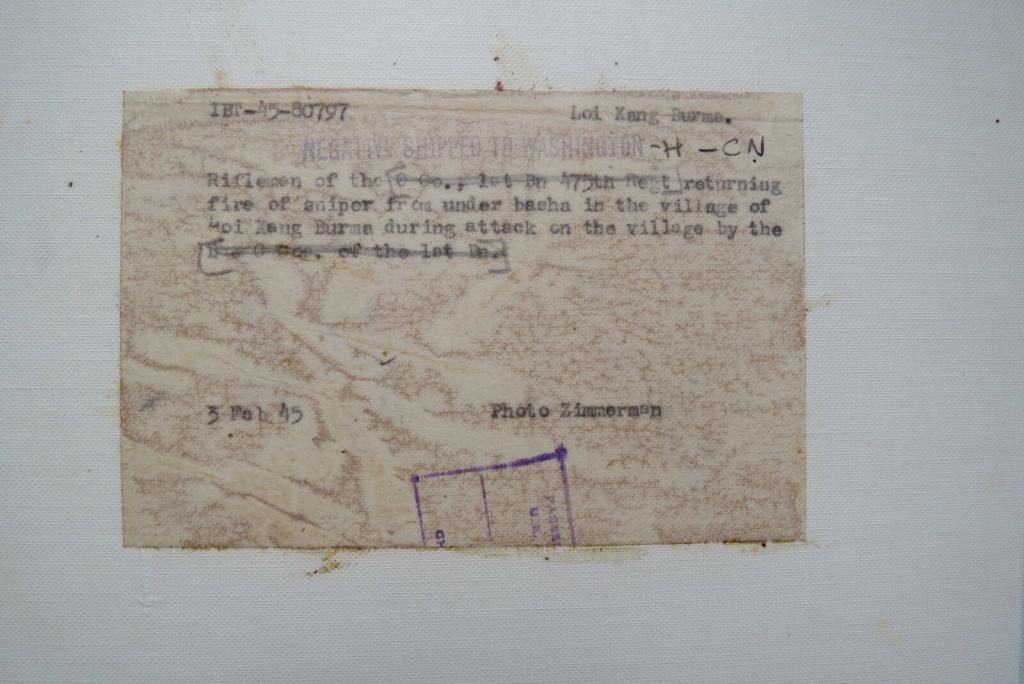 IBT-45-80797 Loi Kang Burma.
NEGATIVE SHIPPED TO WASHINGTON -H -CN
Riflemen of the C Co., 1st Bn 475th Regt returning
fire of sniper from under basha in the village of
Loi Kang Burma during attack on the village by the
B & C Cos. of the 1st Bn.
3 Feb 45 Photo Zimmerman
U.S.